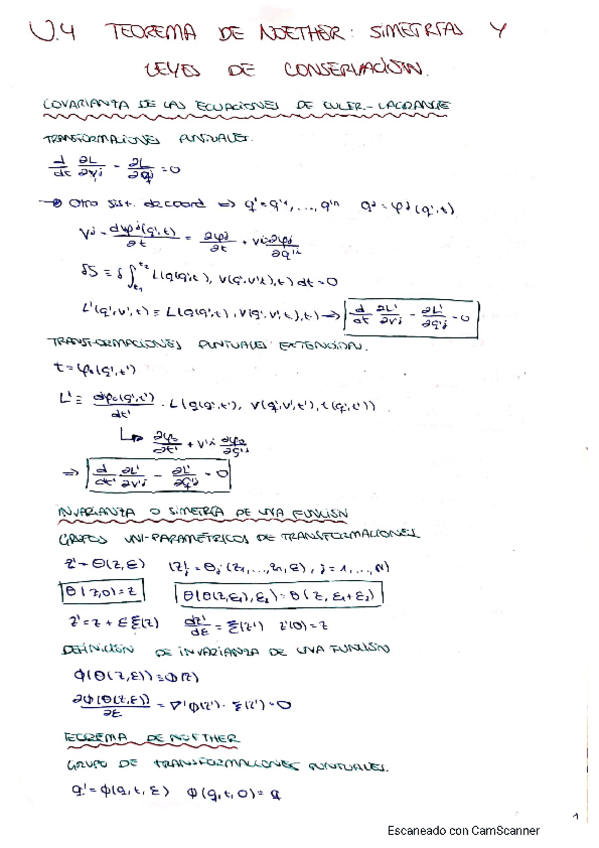 U.4 TEOREMA DE NOETHER: SIMETRÍAS Y
LEYES DE CONSERVACIÓN.
COVARIANZA DE LAS ECUACIONES DE EULER-LAGRANGE
TRANSFORMACIONES PUNTUALES.
d/dt ∂L/∂vj - ∂L/∂qj = 0
→ Otro sist. de coord ⇒ q' = q'1, ..., q'n qj = φj(q', t)
vj = dφj(q', t)/∂t = ∂φj/∂t + v'i ∂φj/∂q'i
δS = δ∫t1^t2 L(q(q', t), v(q', v', t), t) dt = 0
L'(q', v', t) = L(q(q', t), v(q', v', t), t) → d/dt ∂L'/∂v'j - ∂L'/∂q'j = 0
TRANSFORMACIONES PUNTUALES EXTENSIÓN.
t = φ0(q', t')
L' ≡ dφ0(q', t')/dt' · L(q(q', t'), v(q', v', t'), t(q', t'))
↳ ∂φ0/∂t' + v'j ∂φ0/∂q'j
⇒ d/dt' ∂L'/∂v'j - ∂L'/∂q'j = 0
INVARIANZA O SIMETRÍA DE UNA FUNCIÓN
GRUPOS UNI-PARAMÉTRICOS DE TRANSFORMACIONES
z' = θ(z, ε) (z'j = θj(z1, ..., zn, ε), j = 1, ..., N)
θ(z, 0) = z θ(θ(z, ε1), ε2) = θ(z, ε1 + ε2)
z' = z + ε ξ(z) dz'/dε = ξ(z') z'(0) = z
DEFINICIÓN DE INVARIANZA DE UNA FUNCIÓN
ϕ(θ(z, ε)) = ϕ(z)
∂ϕ(θ(z, ε))/∂ε = ∇'ϕ(z') · ξ(z') = 0
TEOREMA DE NOETHER
GRUPO DE TRANSFORMACIONES PUNTUALES.
q' = ϕ(q, t, ε) ϕ(q, t, 0) = q
1
Escaneado con CamScanner